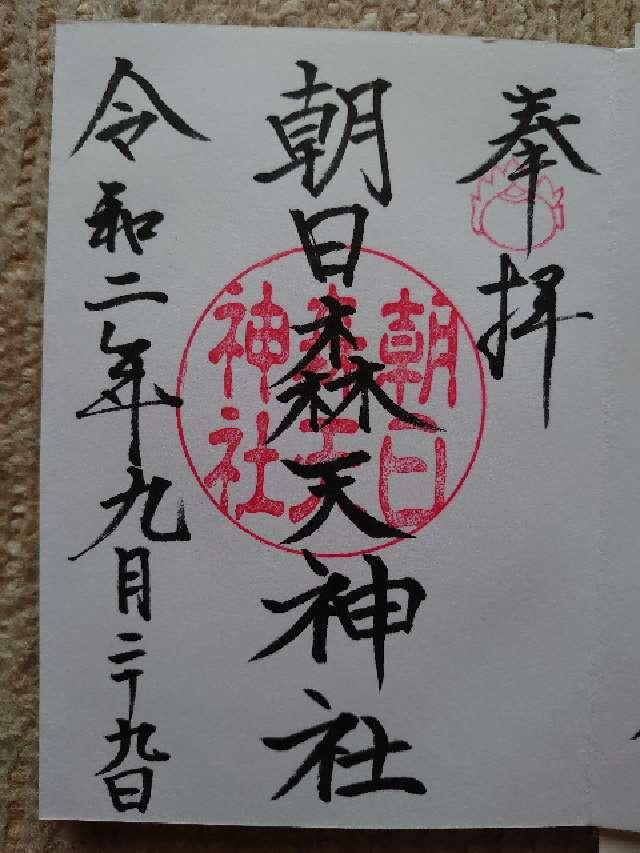 奉拝
朝日森天神社
朝日森天神社
令和二年九月二十九日